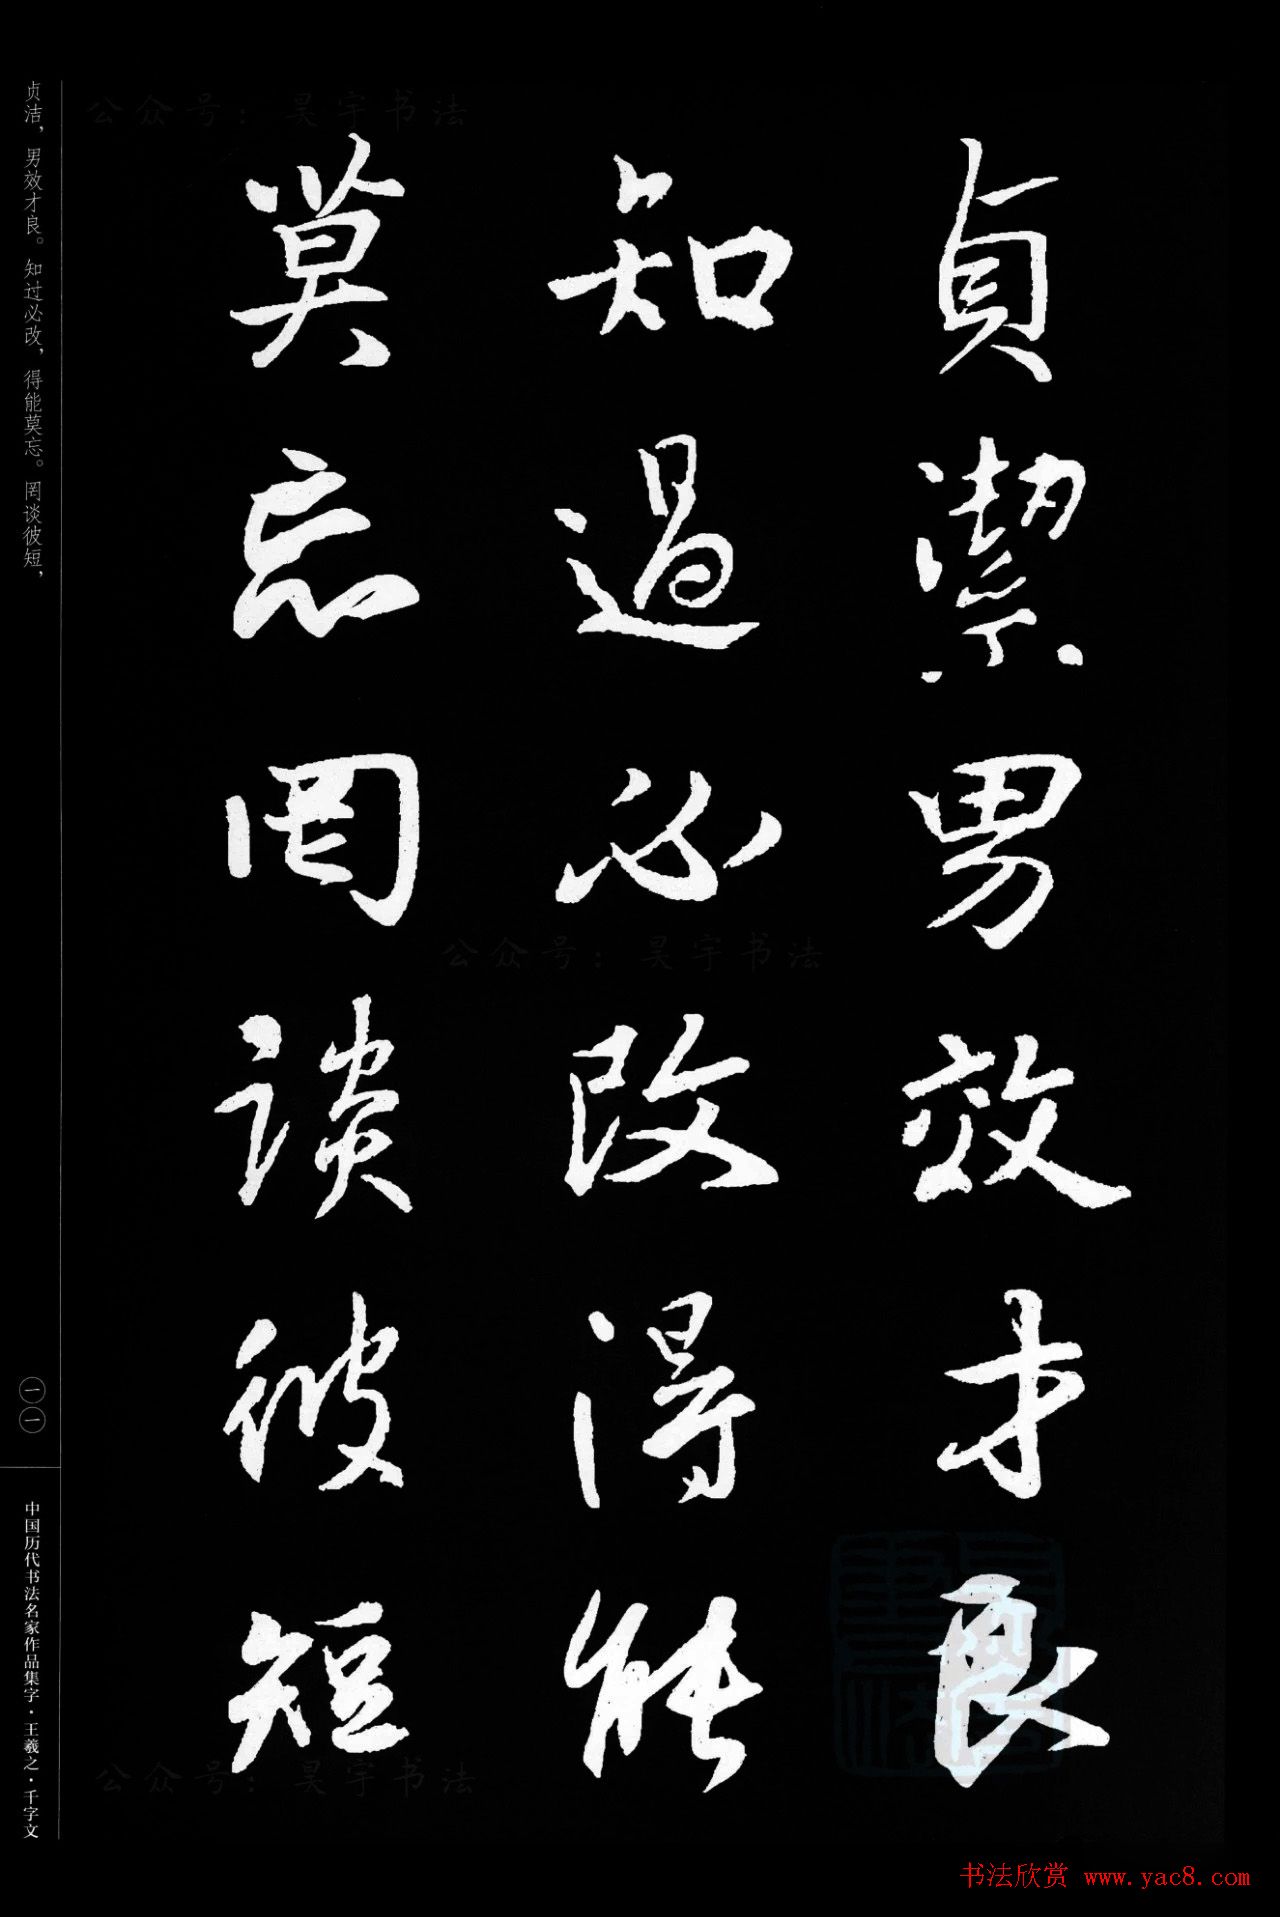 貞潔男效才良
知過必改得能
莫忘罔談彼短
贞洁，男效才良。知过必改，得能莫忘。罔谈彼短，
一一
中国历代书法名家作品集字·王羲之·千字文
公众号：昊宇书法
公众号：昊宇书法
公众号：昊宇书法
书法欣赏 www.yac8.com